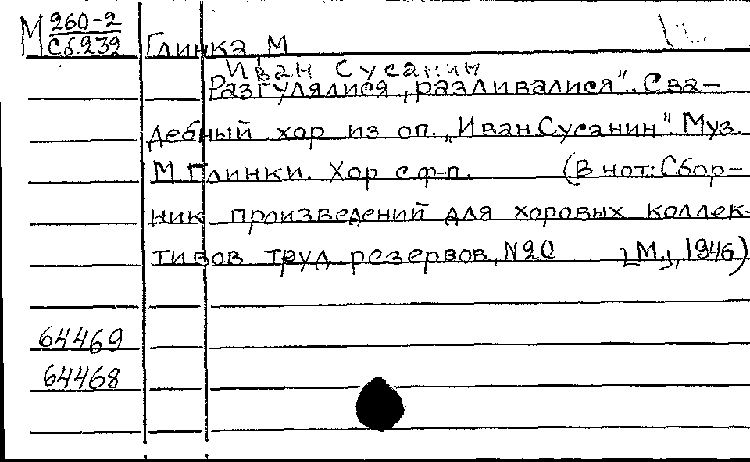 М 260-2
Сб.232
Глинка М
Иван Сусанин
Разгулялися „разливалися". Сва-
дебный хор из оп. „Иван Сусанин". Муз.
М. Глинки. Хор с ф-п. (В нот: Сбор-
ник произведений для хоровых коллек-
тивов труд. резервов, №20 [М], 1946)
64469
64468